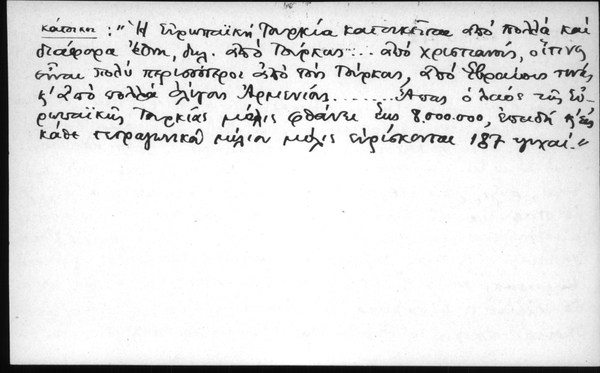 κάτοικοι : "Ἡ Εὐρωπαϊκή Τουρκία κατοικεῖται ἀπό πολλά καί
διάφορα ἔθνη, δηλ. ἀπό Τούρκους.... ἀπό χριστιανούς, οἵτινες
εἶναι πολύ περισσότεροι ἀπό τούς Τούρκους, ἀπό Ἑβραίους τινάς
κ' ἀπό πολλά ὀλίγους Ἀρμενίους......... Ἅπας ὁ λαός τῆς Εὐ-
ρωπαϊκῆς Τουρκίας μόλις φθάνει ἕως 8.000.000, ἐπειδή κ' εἰς
κάθε τετραγωνικόν μίλιον μόλις εὑρίσκονται 187 ψυχαί."